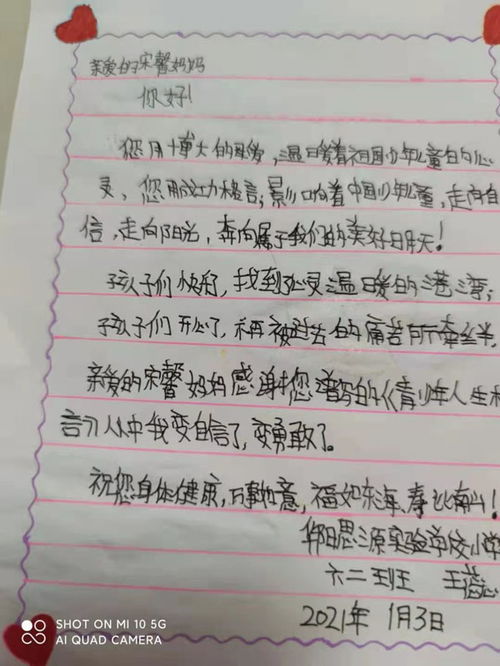 亲爱的宋馨妈妈
你好!
您用博大的母爱,温暖着祖国少年儿童的心
灵,您用成功格言;影响着中国少年儿童,走向自
信,走向阳光,奔向属于我们的美好明天!
孩子们快乐,找到心灵温暖的港湾;
孩子们开心了,不再被过去的痛苦所牵绊
亲爱的宋馨妈妈感谢您谱写的《青少年人生格
言》从中我变自信了,变勇敢了。
祝您身体健康,万事如意,福如东海、寿比南山!
思源实验学校小学
六二班 王
2021年 1月3日
SHOT ON MI 10 5G
AI QUAD CAMERA